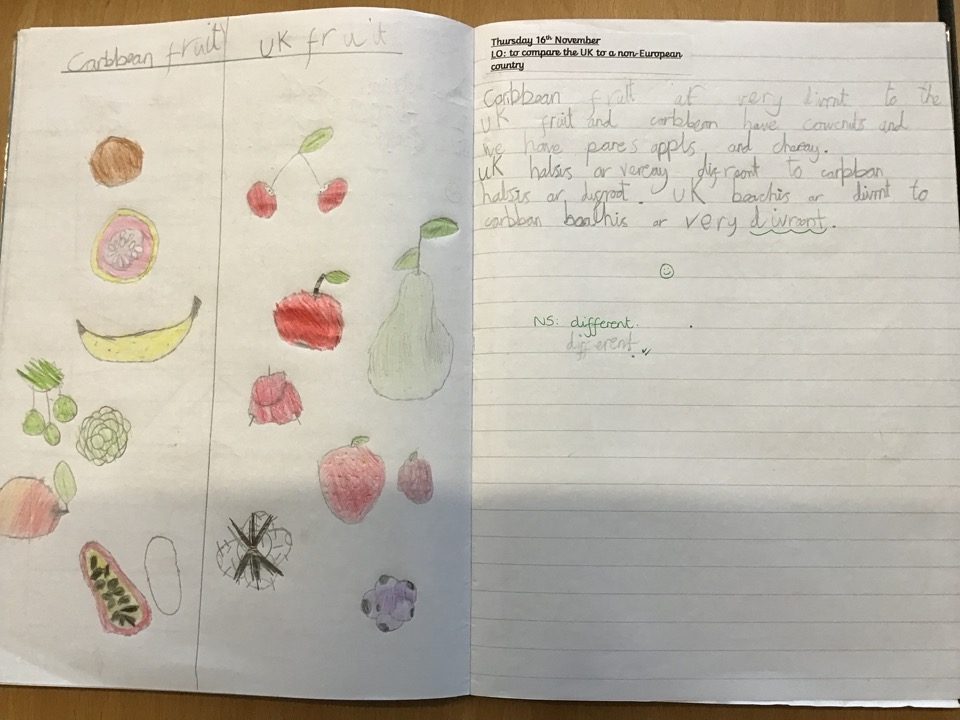 Caribbean fruit UK fruit
Thursday 16th November
LO: to compare the UK to a non-European
country
Caribbean fruit ar very divrnt to the
UK fruit and caribbean have cowcnuts and
we have pares appls and cheray.
UK halsis or veray disreont to caribban
halsis or disroot. UK beachis ar divrnt to
caribban beachis ar very divroont.
NS: different.
different